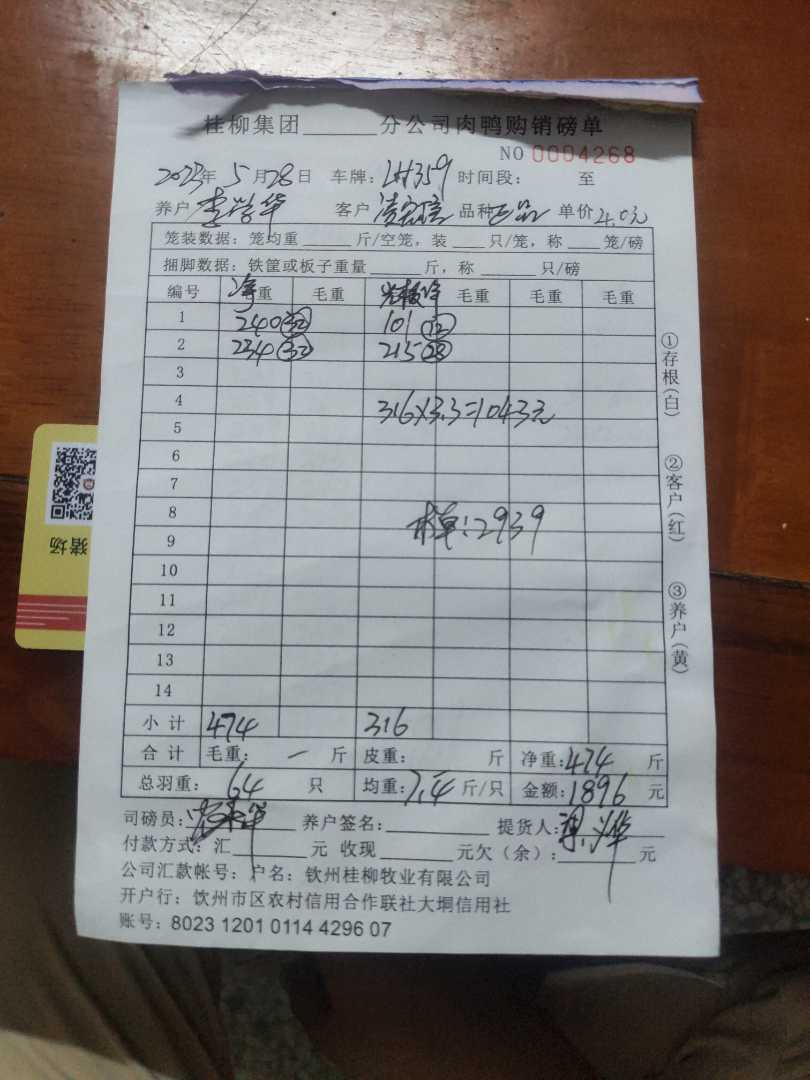 桂柳集团______分公司肉鸭购销磅单
NO 0004268
2023年 5月28日 车牌: LH359 时间段: 至
养户 李学华 客户 品种 正品 单价 4.0元
笼装数据: 笼均重 ____ 斤/空笼, 装 ___ 只/笼, 称 ___ 笼/磅
捆脚数据: 铁筐或板子重量 ____ 斤, 称 ____ 只/磅
编号 净重 毛重 净 毛重 毛重 毛重
1 240 (32) 101 (12)
2 234 (32) 215 (28)
3
4 316×3.3=1043元
5
6
7
8 单:2939
9
10
11
12
13
14
小计 474 316
合计 毛重: 一 斤 皮重: 斤 净重: 474 斤
总羽重: 64 只 均重: 7.4 斤/只 金额: 1896 元
司磅员: 养户签名: 提货人:
付款方式: 汇______元 收现______元欠(余):______元
公司汇款帐号: 户名: 钦州桂柳牧业有限公司
开户行: 钦州市区农村信用合作联社大垌信用社
账号: 8023 1201 0114 4296 07
①存根(白)
②客户(红)
③养户(黄)
猪场